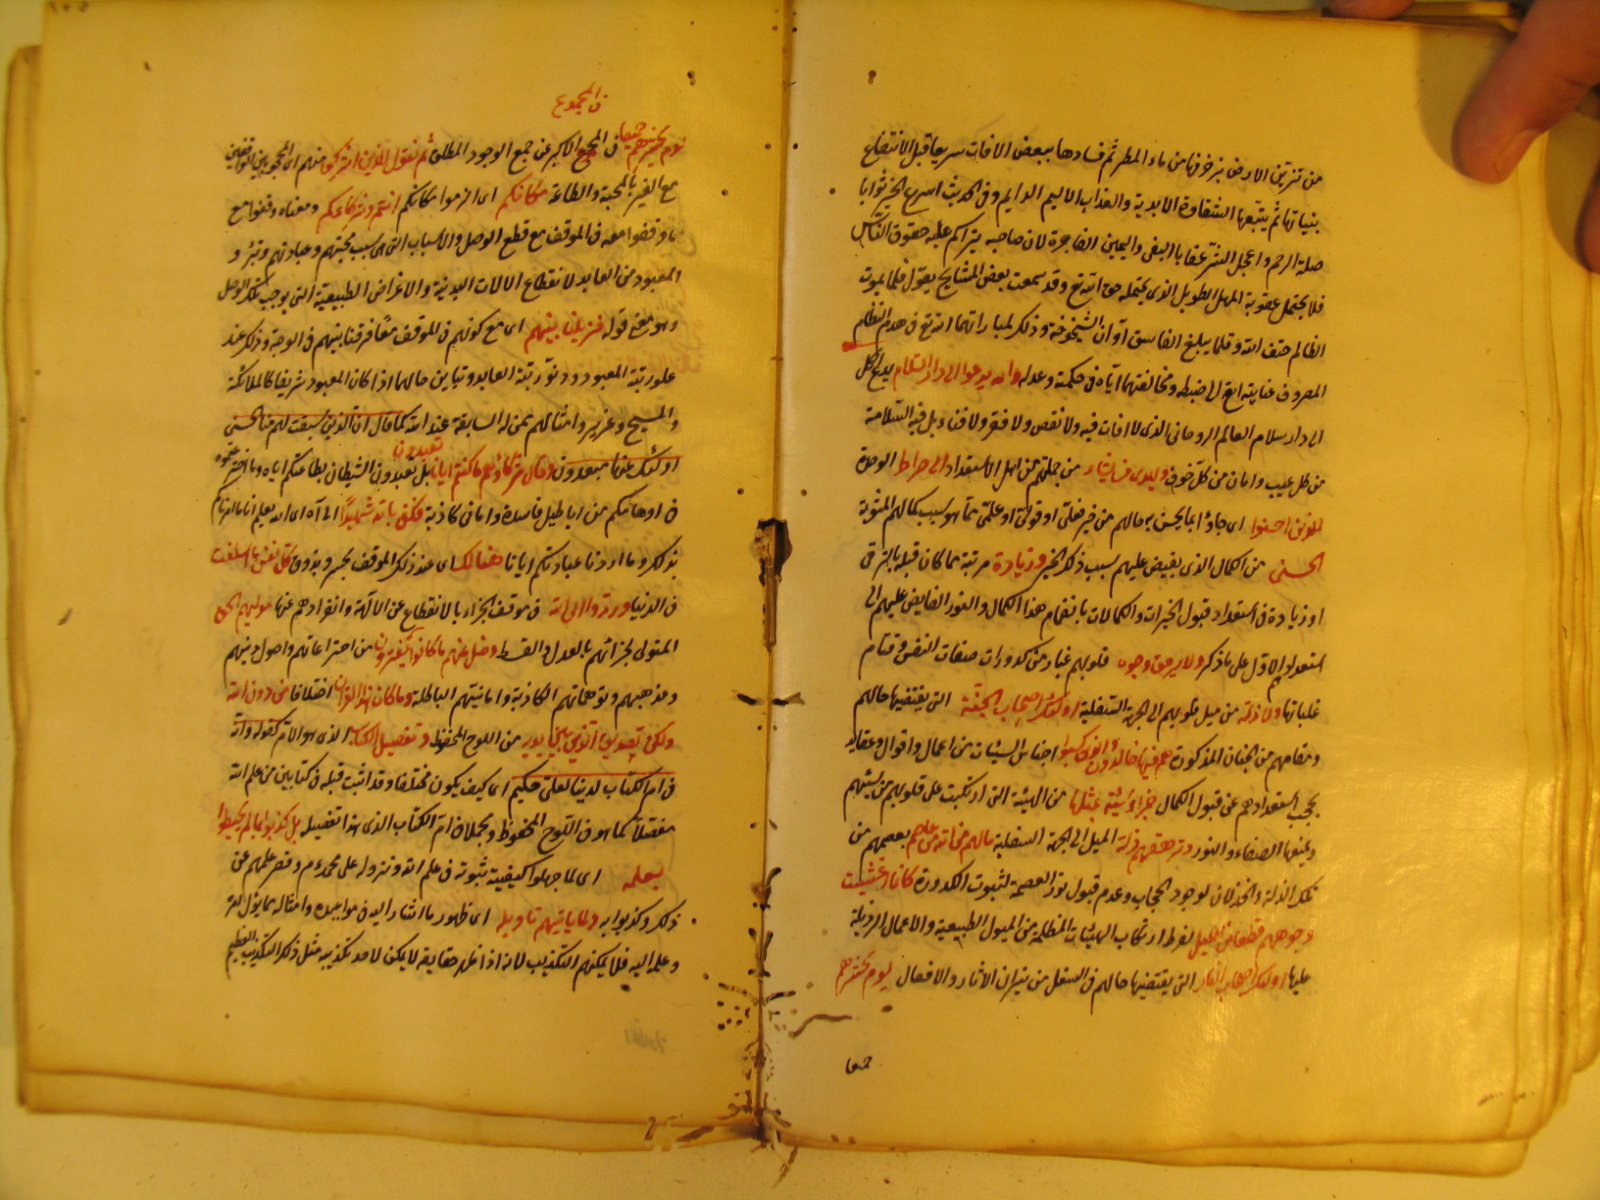 من تزيين الارض بزخرفها من ماء المطر ثم فسادها ببعض الافات سريعا قبل الانتفاع
بنباتها ثم يتبعها الشقاوة الابدية والعذاب الاليم الدايم وفى الحديث اسرع الخير ثوابا
صلة الرحم واعجل الشر عقابا البغى واليمين الفاجرة لان صاحبه يتراكم عليه حقوق الناس
فلا يحتمل عقوبة المهل الطويل الذى يحتمله حق الله تع وقد سمعت بعض المشايخ يقول قلما يموت
الظالم حتف انفه وقلما يبلغ الفاسق اوان الشيخوخة وذكر لمبارزتهما الله تع فى هدم النظام
المصروف عنايته تع الى ضبطه ومخالفتهما اياه فى حكمته وعدله والله يدعوا الى دار السلام يدع الكل
الى دار سلام العالم الروحانى الذى لا افات فيه ولا نقص ولا فقر ولا فناء بل فيه السلامة
من كل عيب وامان من كل خوف ويهدى من يشاء من جملتهم من اهل الاستعداد الى صراط الوحدة
للذين احسنوا اى جاؤا بما يحسن به حالهم من خير فعلى او قولى او علمى مما هو سبب كمالهم المثوبة
الحسنى من الكمال الذى يفيض عليهم بسبب ذكر الخير وزيادة مرتبة مما كان قبله بالترقى
او زيادة فى استعداد قبول الخيرات والكمالات بانضمام هذا الكمال والنور الفايض عليهم الى
استعدادهم الاول على ما ذكر ولا يرهق وجوه قلوبهم غبار من كدورات صفات النفس وقتام
غلباتها ولا ذلة من ميل قلوبهم الى الجهة السفلية اولئك اصحاب الجنة التى يقتضيها حالهم
ومقامهم من الجنان المذكورة هم فيها خالدون والذين كسبوا اجناس السيئات من اعمال واقوال وعقايد
يحجب استعدادهم عن قبول الكمال جزاء سيئة بمثلها من الهيئة التى ارتكبت على قلوبهم من سيئتهم
ويمنعها الصفاء والنور وترهقهم ذلة الميل الى الجهة السفلية ما لهم من الله من عاصم يعصمهم من
تلك الذلة والخذلان لوجود الحجاب وعدم قبول نور العصمة لثبوت الكدورة كانما اغشيت
وجوههم قطعا من الليل لفرط ارتكاب الهيئات المظلمة من الميول الطبيعية والاعمال الرديلة
عليها اولئك اصحاب النار التى يقتضيها حالهم فى السفل من نيران الاثار والافعال يوم نحشرهم
جميعا
فى المجموع
يوم نحشرهم جميعا فى المجمع الاكبر عن جمع الوجود المطلق ثم نقول للذين اشركوا منهم اى المحجوبين الواقفين
مع الغير بالمحبة والطاعة مكانكم اى الزموا مكانكم انتم وشركاؤكم ومعناه وقفوا مع
ما وقفوا معه فى الموقف مع قطع الوصل والاسباب التى هى سبب محبتهم وعبادتهم وتبرؤ
المعبود من العابد لانقطاع الالات البدنية والاغراض الطبيعية التى يوجب تلك الوصل
وهو معنى قوله فزيلنا بينهم اى مع كونهم فى الموقف معا فرقنا بينهم فى الوجهة وذكر عند
علو رتبة المعبود ودنو رتبة العابد وتباين حالهما اذا كان المعبود شريفا كالملائكة
والمسيح وعزير وامثالهم ممن له السابقة عند الله كما قال ان الذين سبقت لهم منا الحسنى
اولئك عنها مبعدون وقال شركاؤهم ما كنتم ايانا تعبدون بل تعبدون الشيطان بطاعتكم اياه وما اخترعتموه
فى اوهامكم من اباطيل فاسدة وامانى كاذبة فكفى بالله شهيدا الى آه اى الله يعلم انا ما امرناكم
بذلك وما اردنا عبادتكم ايانا هنالك اى عند ذلك الموقف يختبر ويذوق كل نفس ما اسلفت
فى الدنيا وردوا الى الله فى موقف الجزاء بالانقطاع عن الآلهة وانفرادهم عنها موليهم الحق
المتولى لجزائهم بالعدل والقسط وضل عنهم ما كانوا يفترون من اختراعاتهم واصول دينهم
ومذهبهم وتوهماتهم الكاذبة وامانيتهم الباطلة وما كان هذا القران اختلاقا من دون الله
ولكن تصديق الذى بين يديه من اللوح المحفوظ وتفصيل الكتاب الذى هو الام كقوله وانه
فى ام الكتاب لدينا لعلى حكيم اى كيف يكون مختلقا وقد اثبت قبله فى كتابين من علم الله
مفصلا كما هو فى اللوح المحفوظ ومجملا فى ام الكتاب الذى هذا تفصيله بل كذبوا بما لم يحيطوا
بعلمه اى لما جهلوا كيفية ثبوته فى علم الله ونزوله على محمد عم وقصر علمهم عن
ذلك وكذبوا به ولما ياتيهم تاويله اى ظهور ما اشار اليه فى مواعيده وامثاله مما يؤل امره
وعلمه اليه فلا يمكنهم التكذيب لانه اذا ظهر حقايقه لا يمكن لاحد تكذيبه مثل ذلك التكذيب العظيم